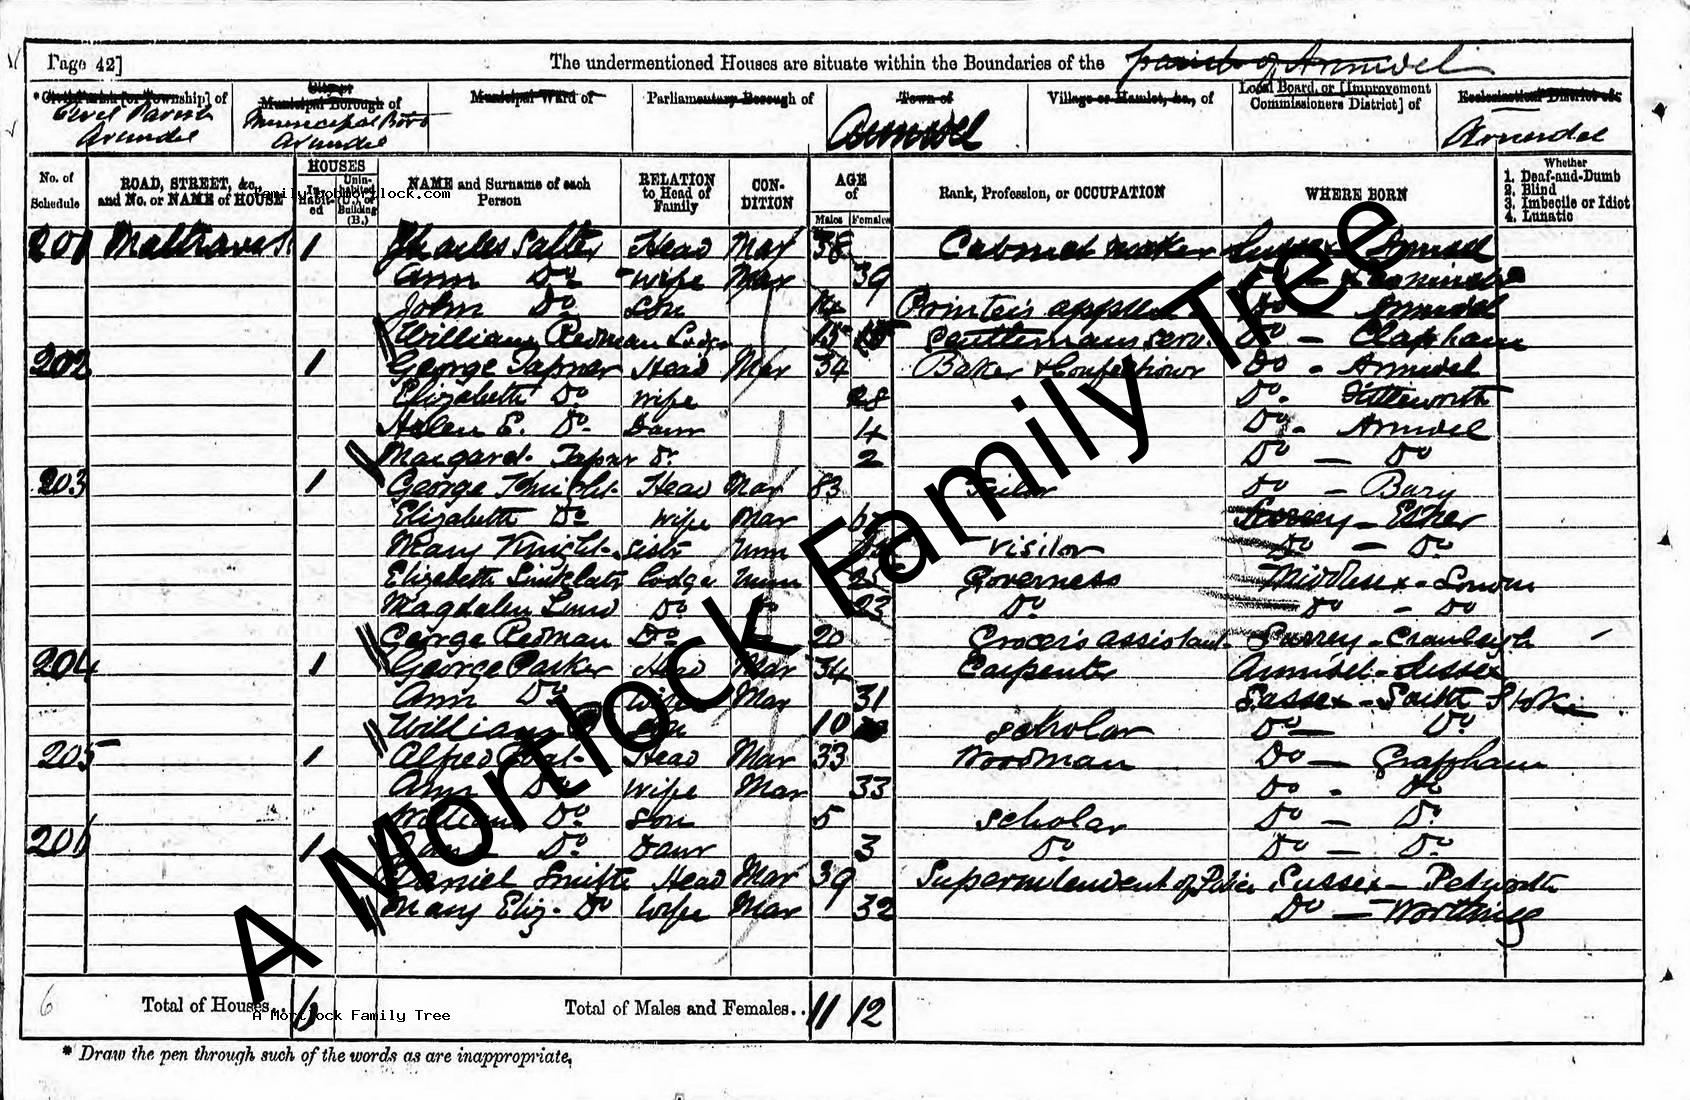 Page 42] The undermentioned Houses are situate within the Boundaries of the parish of Arundel
*Civil Parish [or Township] of City or Municipal Borough of Municipal Ward of Parliamentary Borough of Town of Village or Hamlet, &c., of Local Board, or [Improvement Commissioners District] of Ecclesiastical District of
Civil Parish Arundel Municipal Boro Arundel Arundel Arundel
No. of Schedule ROAD, STREET, &c., and No. or NAME of HOUSE HOUSES In-habit-ed Unin-habited (U.), or Building (B.) NAME and Surname of each Person RELATION to Head of Family CON-DITION AGE of Males Females Rank, Profession, or OCCUPATION WHERE BORN Whether 1. Deaf-and-Dumb 2. Blind 3. Imbecile or Idiot 4. Lunatic
family.bobmortlock.com
201 Maltravers 1 Charles Salter Head Mar 38 Cabinet maker Sussex Arundel
Ann Do Wife Mar 39
John Do Son Printer's Do Arundel
William Redman 15 Do - Clapham
202 1 George Tapner Head Mar 34 Baker & Confectioner Do - Arundel
Elizabeth Do Wife 28 Do - Fittleworth
Helen E. Do Daur 4 Do - Arundel
Margaret Tapner Do 2 Do - Do
203 1 George Knight Head Mar 83 Do - Bury
Elizabeth Do Wife Mar Surrey - Esher
Mary Knight Sistr Unm Visitor Do - Do
Elizabeth Lodgr Unm 25 Governess Middlesex - London
Magdalen Do Do 23 Do Do - Do
George Redman Do 20 Grocer's assistant Surrey - Cranleigh
204 1 George Parker Head Mar 34 Carpenter Arundel - Sussex
Ann Do Wife Mar 31 Sussex - South Stoke
William Son 10 Scholar Do - Do
205 1 Alfred Head Mar 33 Woodman Do - Graffham
Ann Do Wife Mar 33 Do - Do
William Do Son 5 Scholar Do - Do
206 1 Do Daur 3 Do Do - Do
Daniel Smith Head Mar 39 Superintendent of Police Sussex - Petworth
Mary Eliz. Do Wife Mar 32 Do - Worthing
A Mortlock Family Tree
6 Total of Houses.. 6 Total of Males and Females.. 11 12
A Mortlock Family Tree
* Draw the pen through such of the words as are inappropriate.